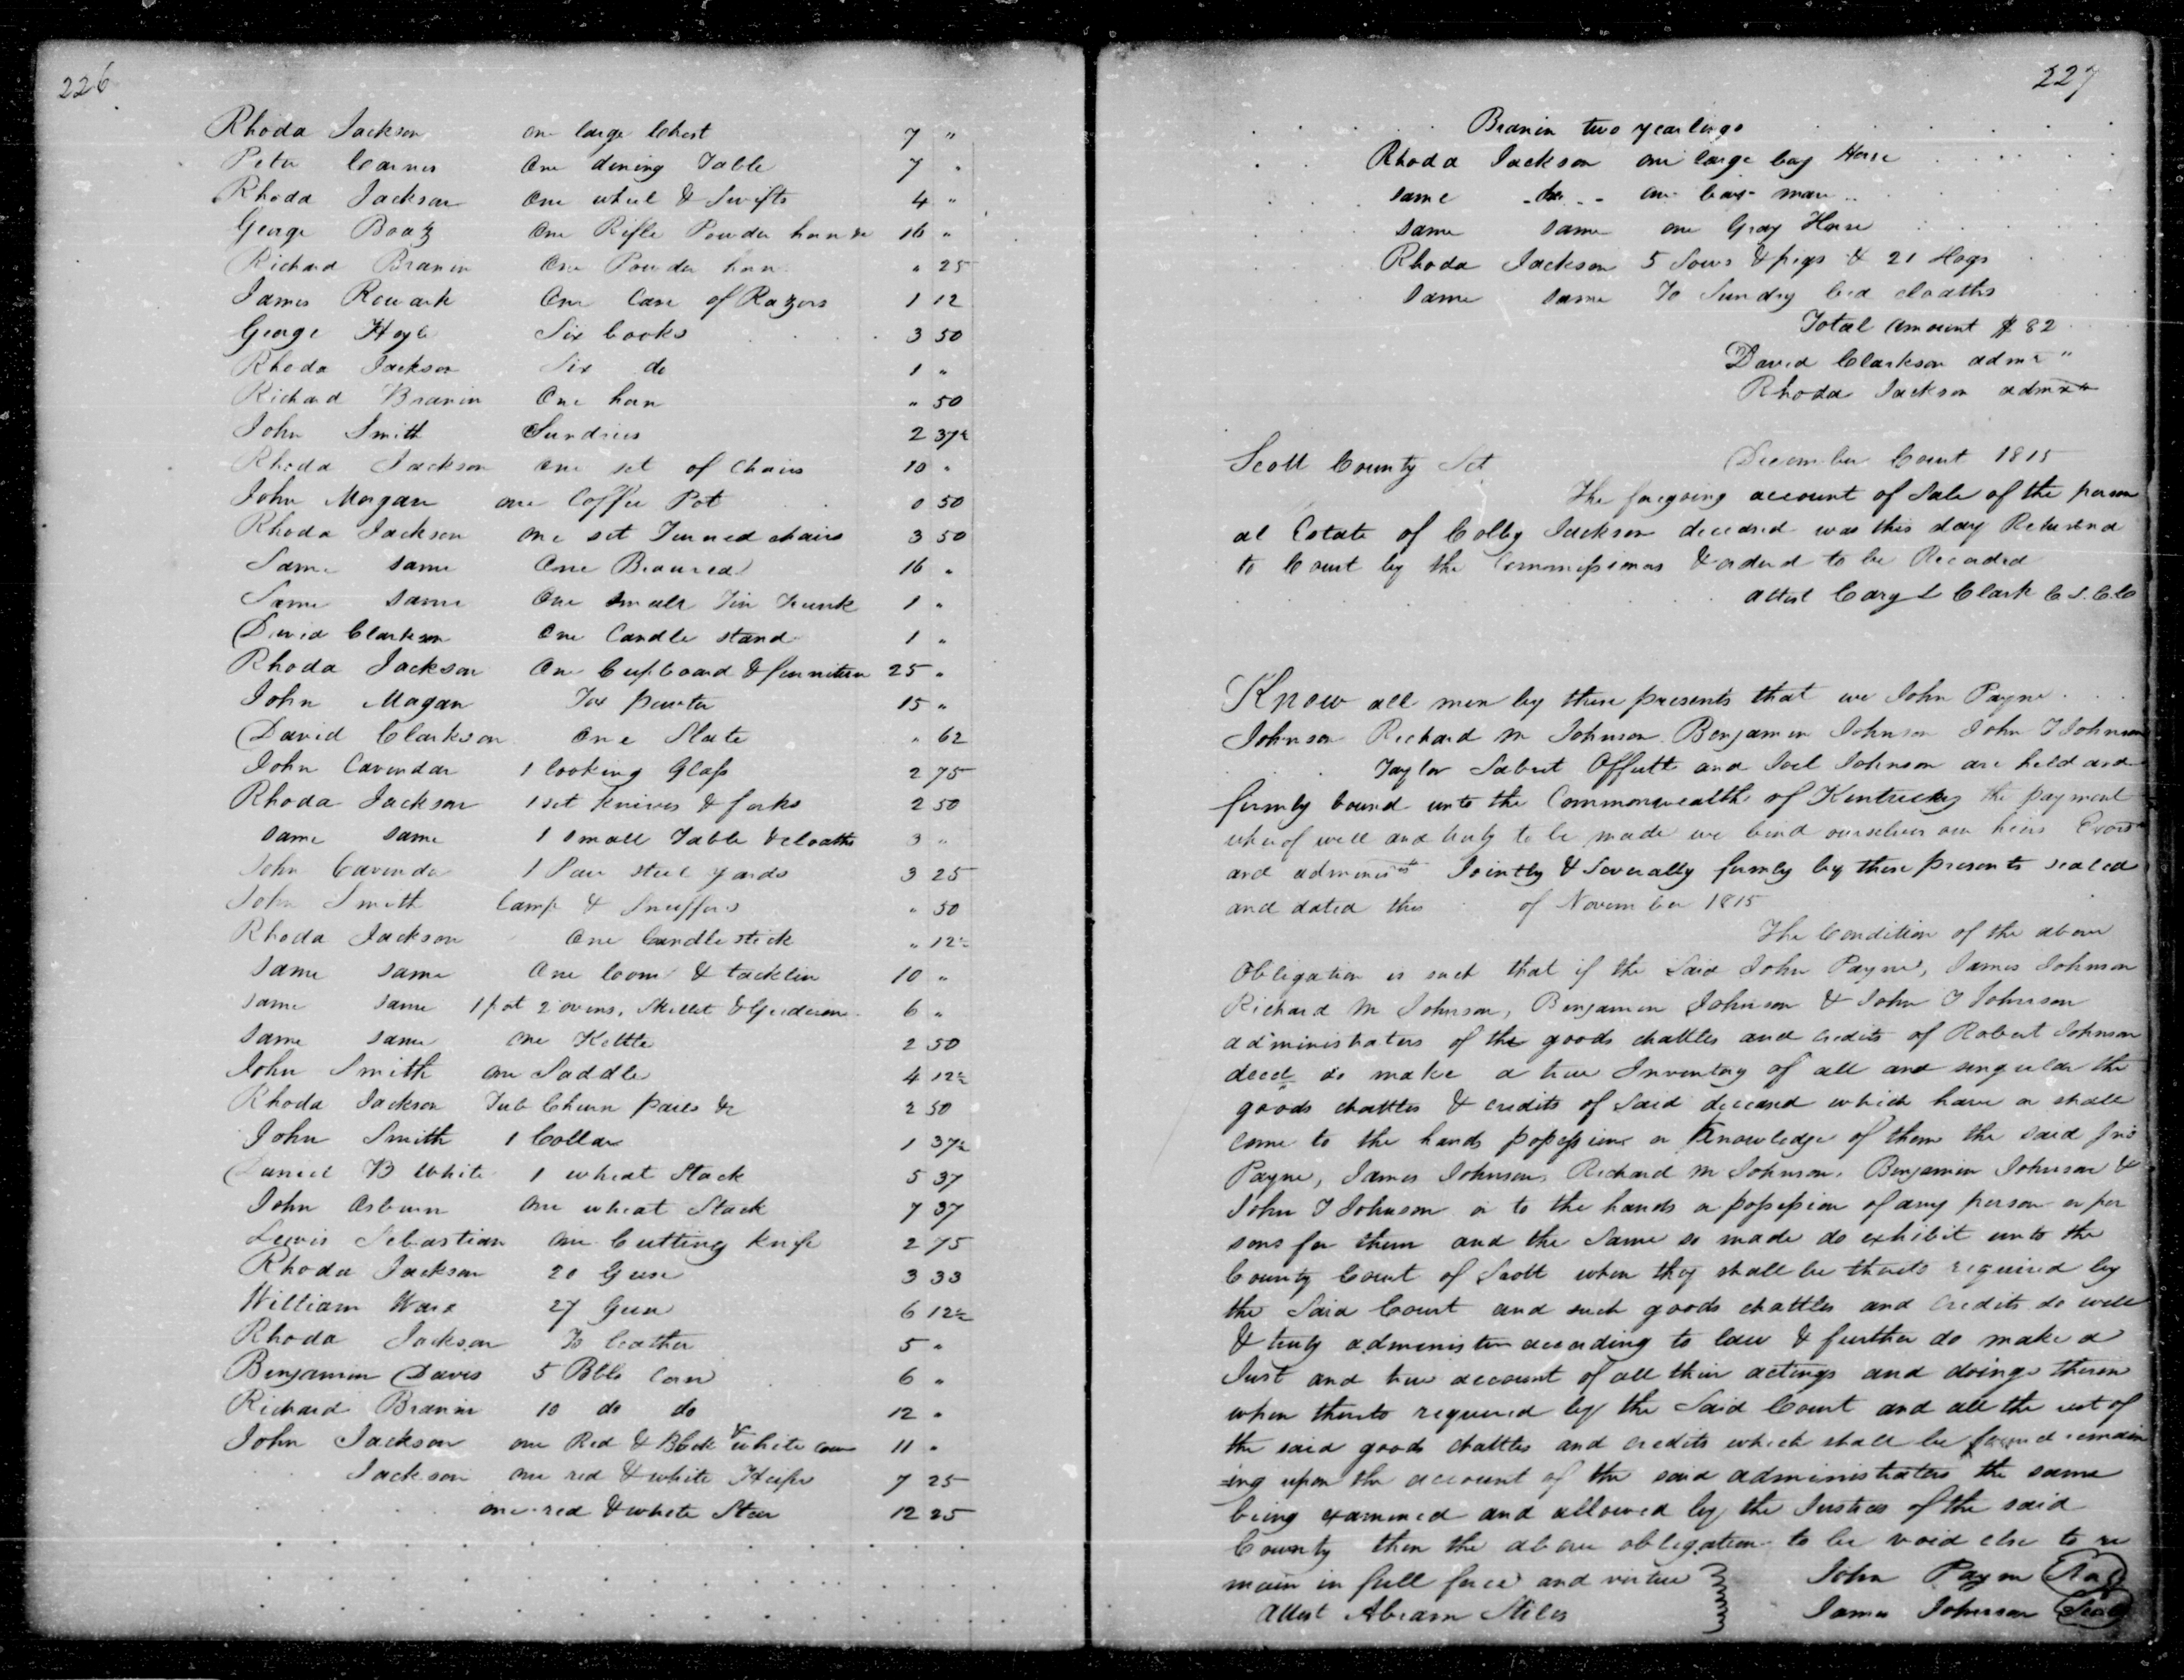 226
Rhoda Jackson one large Chest 7 "
Peter Carnes One dining Table 7 "
Rhoda Jackson One wheel & Swifts 4 "
George Boatz One Rifle Powder horn &c 16 "
Richard Branin One Powder horn " 25
James Rowark One Case of Razors 1 12
George Hoyle Six books 3 50
Rhoda Jackson Six do 1 "
Richard Branin One horn " 50
John Smith Sundries 2 37½
Rhoda Jackson one set of Chairs 10 "
John Morgan one Coffee Pot 0 50
Rhoda Jackson one set Turned chairs 3 50
Same same One Beaured 16 "
Same same One small Tin Trunk 1 "
David Clarkson One Candle stand 1 "
Rhoda Jackson One Cupboard & furniture 25 "
John Magan For pewter 15 "
David Clarkson One Slate " 62
John Cavendar 1 looking Glass 2 75
Rhoda Jackson 1 set Knives & forks 2 50
same same 1 small Table & cloaths 3 "
John Cavender 1 Pair steel yards 3 25
John Smith Lamp & Snuffers " 50
Rhoda Jackson One Candlestick " 12½
same same One loom & tacklin 10 "
same same 1 pot 2 ovens, Skillet & Gridiron 6 "
same same one Kettle 2 50
John Smith one Saddle 4 12½
Rhoda Jackson Tub Churn pails &c 2 50
John Smith 1 Collar 1 37½
Daniel B White 1 wheat Stack 5 37
John Asburn one wheat Stack 7 37
Lewis Sebastian one Cutting knife 2 75
Rhoda Jackson 20 Geese 3 33
William Ware 27 Geese 6 12½
Rhoda Jackson To leather 5 "
Benjamin Davis 5 Bbls Corn 6 "
Richard Branin 10 do do 12 "
John Jackson one Red & Black & white cow 11 "
Jackson one red & white Heifer 7 25
one red & white Steer 12 25
227
Branin two yearlings
Rhoda Jackson one large bay Horse
same one bay mare
same same one Gray Horse
Rhoda Jackson 5 Sows & pigs & 21 Hogs
same same To Sundry bed cloaths
Total amount $ 82
David Clarkson admr "
Rhoda Jackson admrx
Scott County Sct December Court 1815
The foregoing account of Sale of the person
al Estate of Colby Jackson deceased was this day Returned
to Court by the Commissioners & ordered to be Recorded
attest Cary L Clark C S. C. C
Know all men by these presents that we John Payne
Johnson Richard M Johnson Benjamin Johnson John T Johnson
Taylor Sabret Offutt and Joel Johnson are held and
firmly bound unto the Commonwealth of Kentucky the payment
whereof well and truly to be made we bind ourselves our heirs Exors
and administrs Jointly & Severally firmly by these presents sealed
and dated this of November 1815
The Condition of the above
Obligation is such that if the Said John Payne, James Johnson
Richard M Johnson, Benjamin Johnson & John T Johnson
administrators of the goods chattles and credits of Robert Johnson
decd do make a true Inventory of all and singular the
goods chattles & credits of said deceased which have or shall
come to the hands possession or Knowledge of them the said Jno
Payne, James Johnson, Richard M Johnson, Benjamin Johnson &
John T Johnson or to the hands or possession of any person or per
sons for them and the Same so made do exhibit unto the
County Court of Scott when they shall be thereto required by
the Said Court and such goods chattles and credits do well
& truly administer according to law & further do make a
Just and true account of all their actings and doings therein
when thereto required by the Said Court and all the rest of
the said goods chattles and credits which shall be found remain
ing upon the account of the said administrators the same
being examined and allowed by the Justices of the said
County then the above obligation to be void else to re
main in full force and virtue John Payne Seal
Attest Abram Stiles James Johnson Seal